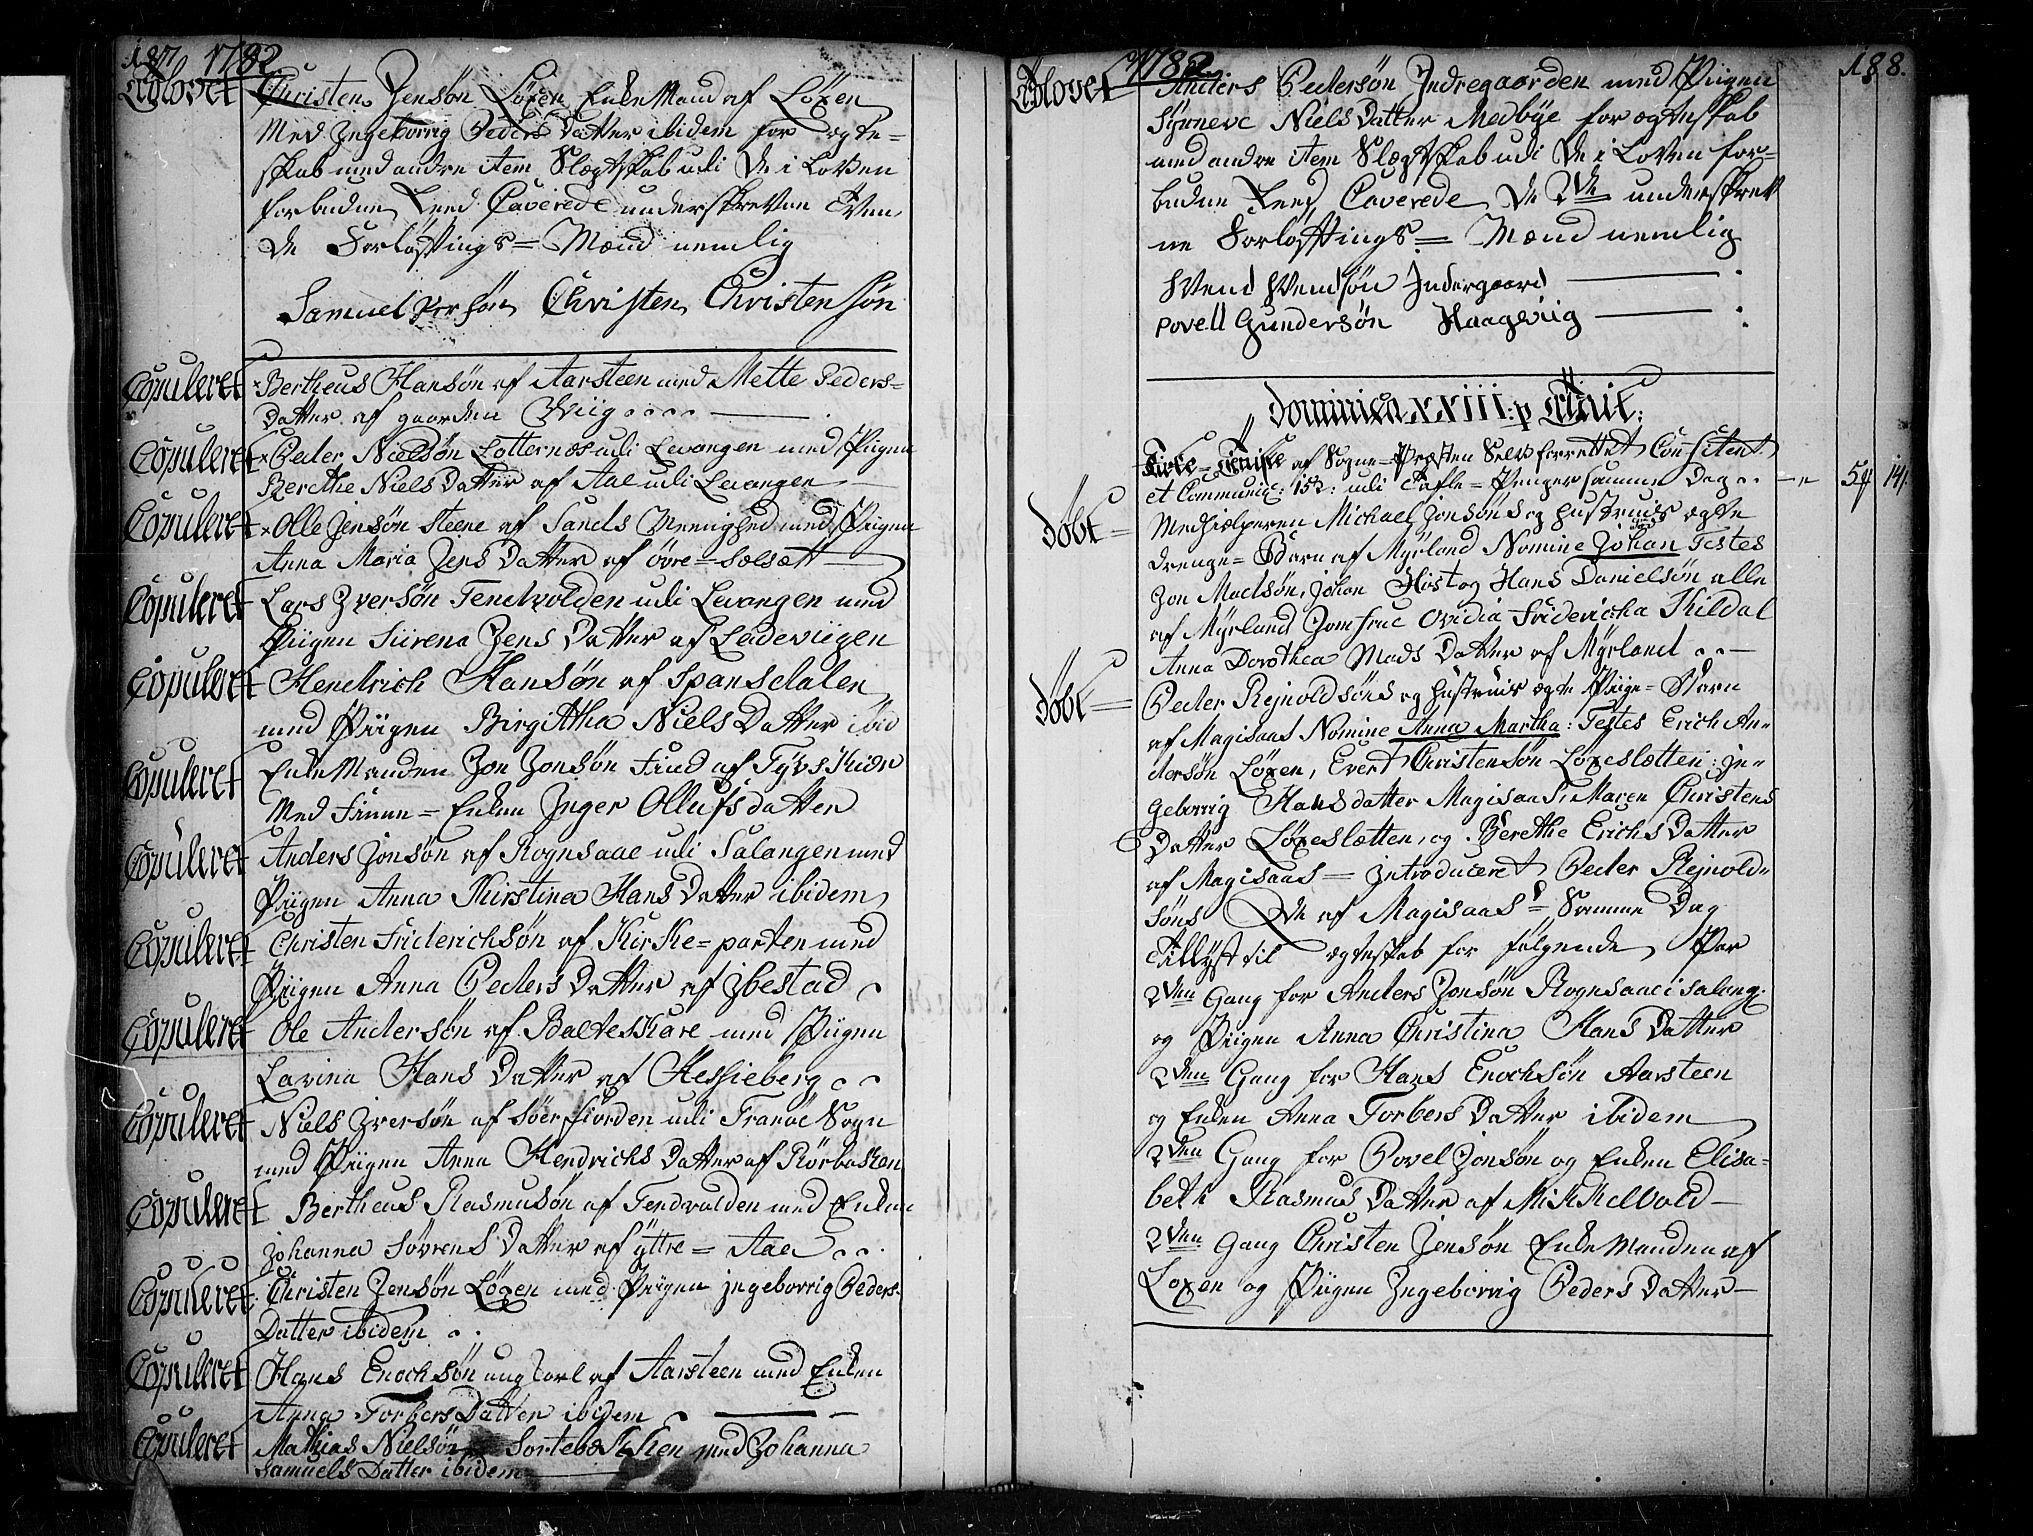 187 1782
Trolovet Christen Jensøn Løxen Enke Mand af Løxen
Med Ingeborrig Peders Datter ibidem for ægte=
skab med andre item Slægtskab udi De i Loven
forbudne Leed Caverede underskrevne Tven
de Forlovtings= Mænd nemlig
Samuel Persøn Christen Christensøn
Copuleret Bertheus Hansøn af Aarsteen med Mette Peders=
Datter af gaarden Wiig
Copuleret Peder Nielsøn Lotternæs udi Levangen med Piigen
Berethe Niels Datter af Aae udi Levangen
Copuleret Olle Jensøn Steene af Sands Meenighed med Piigen
Anna Maria Jens Datter af øvre= Sælsætt
Copuleret Lars Iversøn Tendvolden udi Levangen med
Piigen Siirena Jens Datter af Ladeviigen
Copuleret Hendrich Hansøn af Spansdalen
med Piigen Birgitha Niels Datter ibid
Copuleret Enke Manden Jon Jonsøn Find af
Med Finne= Enken Inger Ollufsdatter
Copuleret Anders Jonsøn af Rognsaae udi Salangen med
Piigen Anna Kirstina Hans Datter ibidem
Copuleret Christen Friderichsøn af Kirke= parten med
Piigen Anna Peders Datter af Ibestad
Copuleret Ole Andersøn af Balteskare med Piigen
Lavina Hans Datter af Hessieberg
Copuleret Niels Iversøn af Søerfiorden udi Tranøe Sogn
med Piigen Anna Hendrichs Datter af Rørbakken
Copuleret Bertheus Rasmusøn af Tendvolden med Enken
Johanna Sørens Datter af yttre= Aae
Copuleret Christen Jensøn Løxen med Piigen Ingeborrig Peders=
Datter ibidem
Copuleret Hans Enochsøn ung karl af Aarsteen med Enken
Anna Torbers Datter ibidem
Copuleret Mathias Nielsøn Sortebakken med Johanna
Samuels Datter ibidem
1782 188.
Trolovet Anders Pedersøn Indregaarden med Piigen
Synneve Niels Datter Medbye for ægteskab
med andre item Slægtskab udi De i Loven for=
budne Leed Caverede De 2de underskrev
ne Forlovtings= Mænd nemlig
Svend Svendsøn Indergaard
Povell Gundersøn Haagwiig
Dominica XXIII: p Trinit:
Kirke= af Sogne= Præsten Selv forrettet Confitent
et Communic: 152: udi Tafle= Penger samme Dag 54 14
Døbt= Medhielperen Michael Jonsøns og hustrues ægte
drenge= Barn af Myrland Nomine Johan Testes
Jon Madsøn, Johan Høst og Hans Danielsøn alle
af Myrland Jomfrue Ovidia Friderichа Kildal
Anna Dorothea Mads Datter af Myrland
Døbt= Peder Rejnoldsøns og Hustrues ægte Piige= Barn
af Magisaas Nomine Anna Martha: Testes Erich An=
dersøn Løxen, Evert Christensøn Løxeslætten: In=
geborrig Hansdatter Magisaas, Maren Christens
Datter Løxeslætten, og Berethe Erichs Datter
af Magisaas= Introduceret Peder Rejnold=
søns Qde af Magisaas= Samme Dag
Tillyst til ægteskab for følgende Par
2den Gang for Anders Jonsøn Rognsaae i Salang:
og Piigen Anna Christina Hans Datter
2den Gang for Hans Enochsøn Aarsteen
og Enken Anna Torbers Datter ibidem
2den Gang for Povel Jonsøn og Enken Elisa=
beth Rasmus Datter af Mikkelbold
2den Gang Christen Jensøn Enke Manden af
Loxen og Piigen Ingeborrig Peders Datter